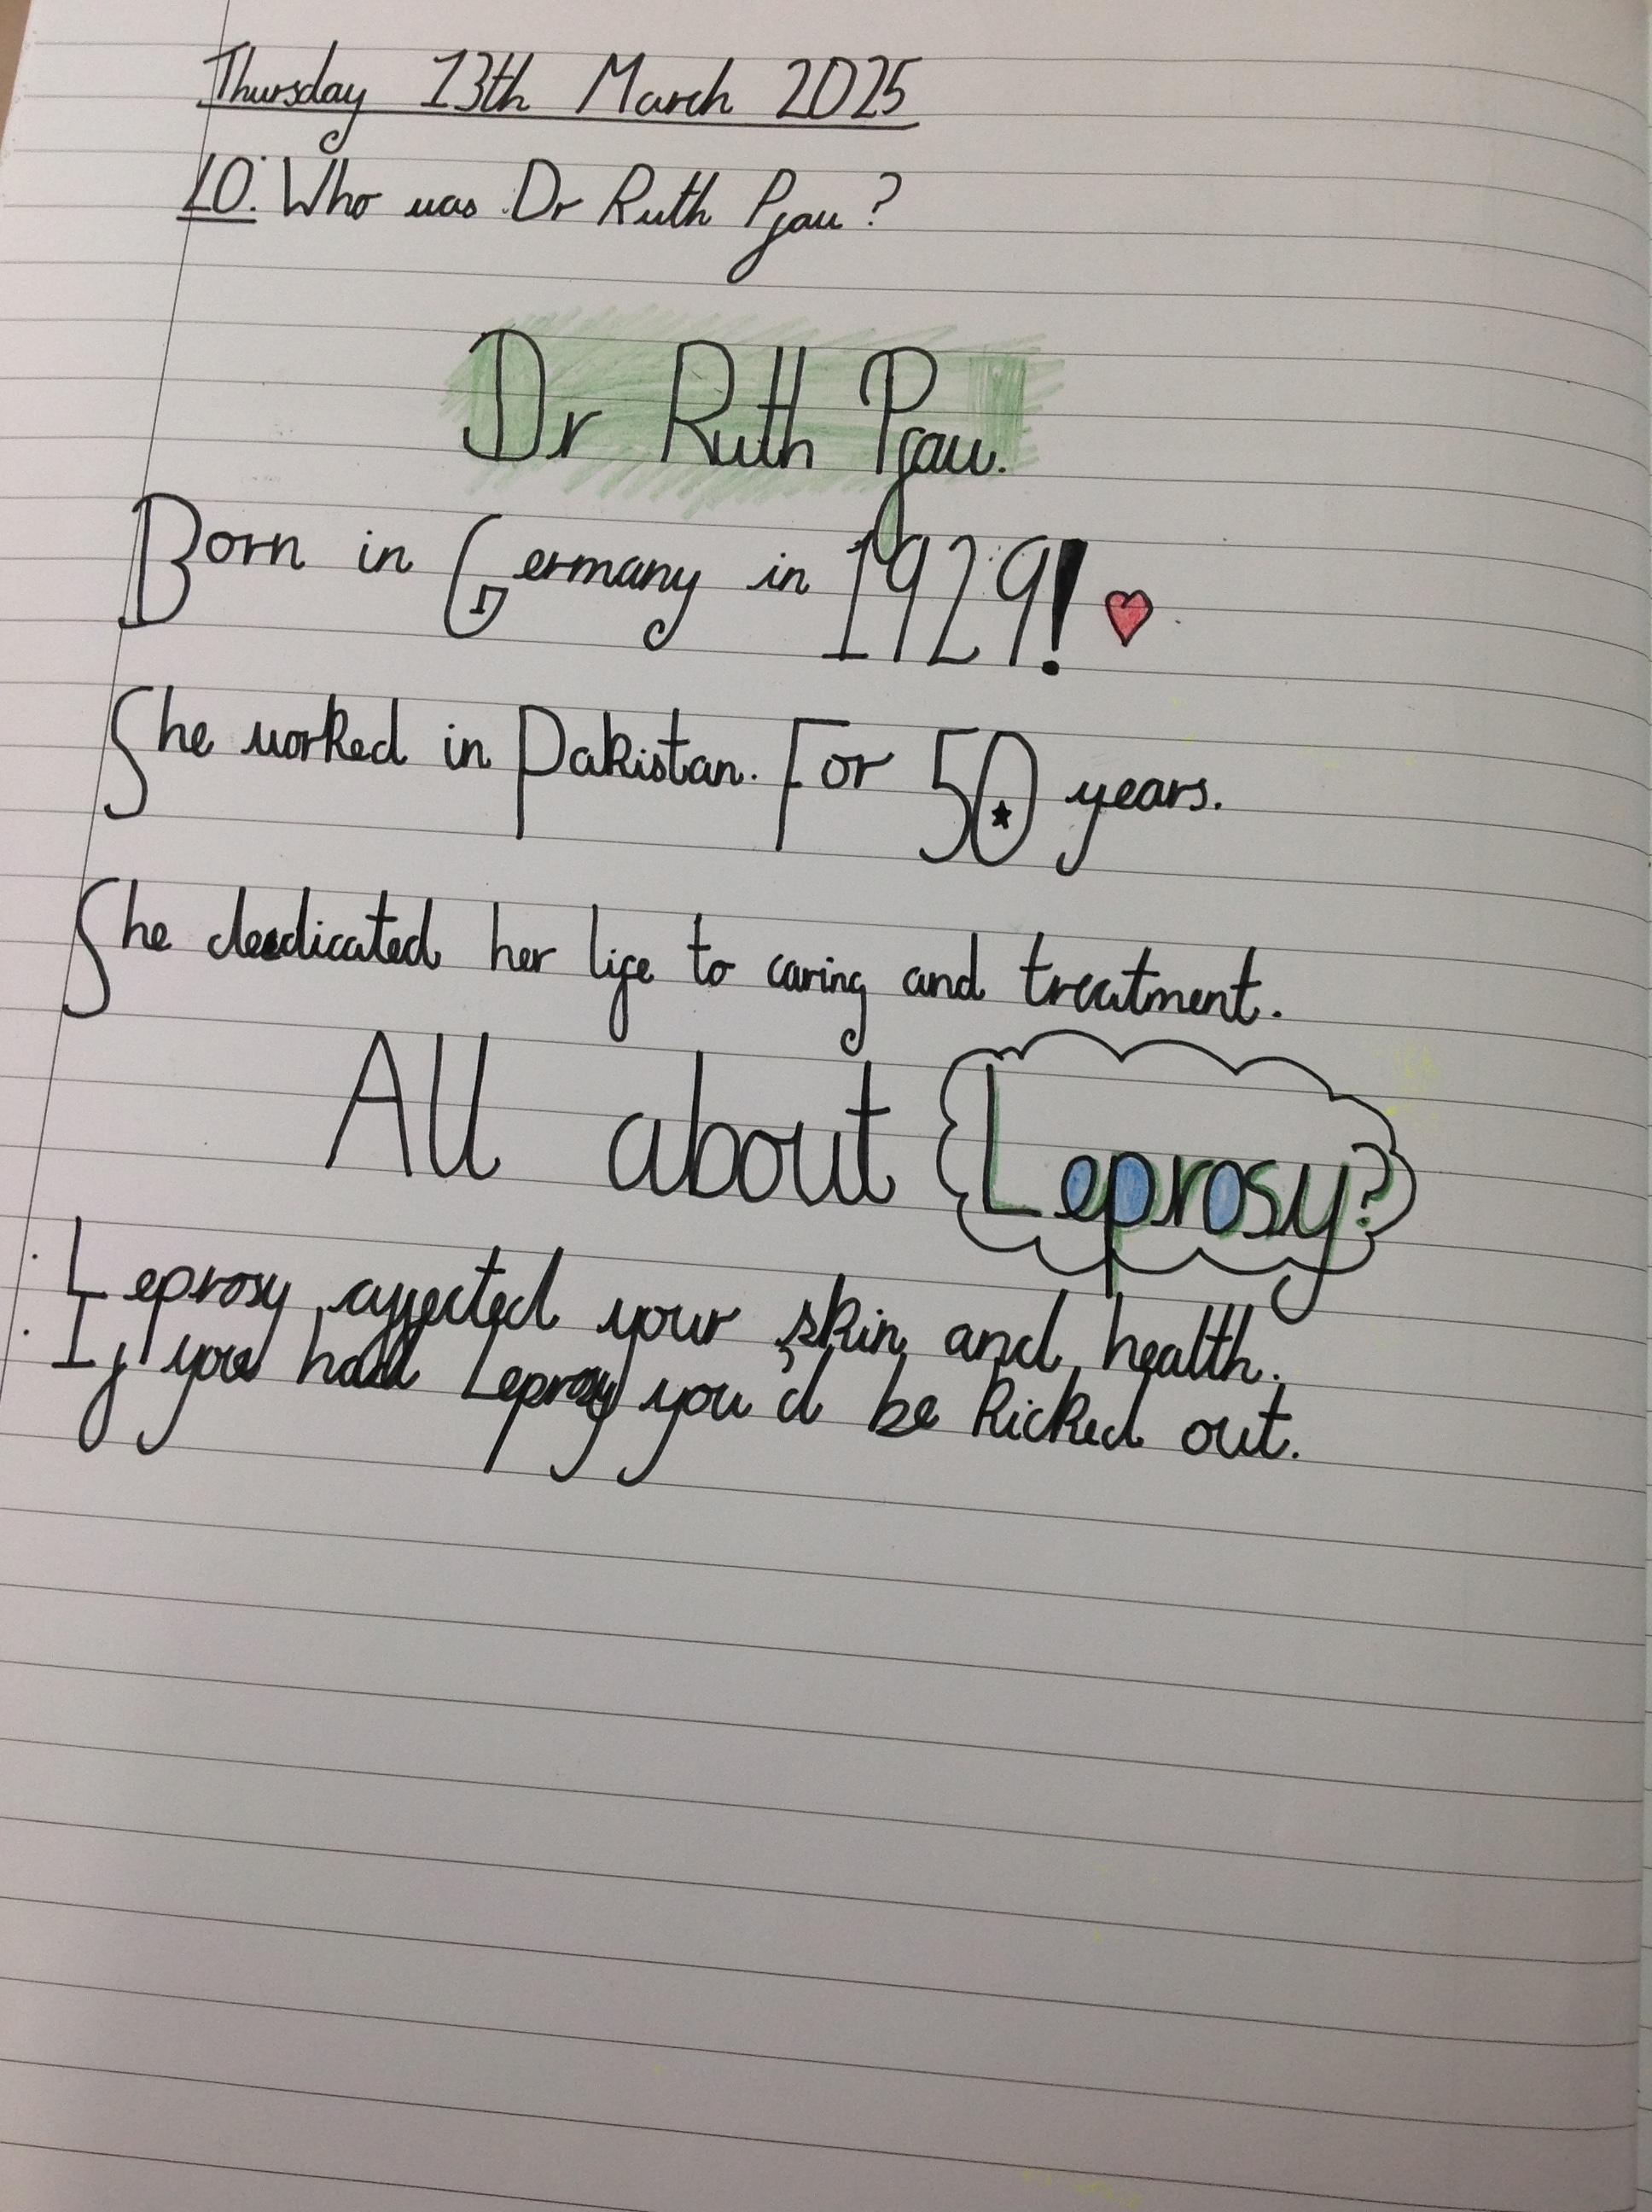 Thursday 13th March 2025
LO: Who was Dr Ruth Pfau?
Dr Ruth Pfau.
Born in Germany in 1929!
She worked in Pakistan. For 50 years.
She dedicated her life to caring and treatment.
All about Leprosy?
· Leprosy affected your skin and health.
· If you had Leprosy you'd be kicked out.